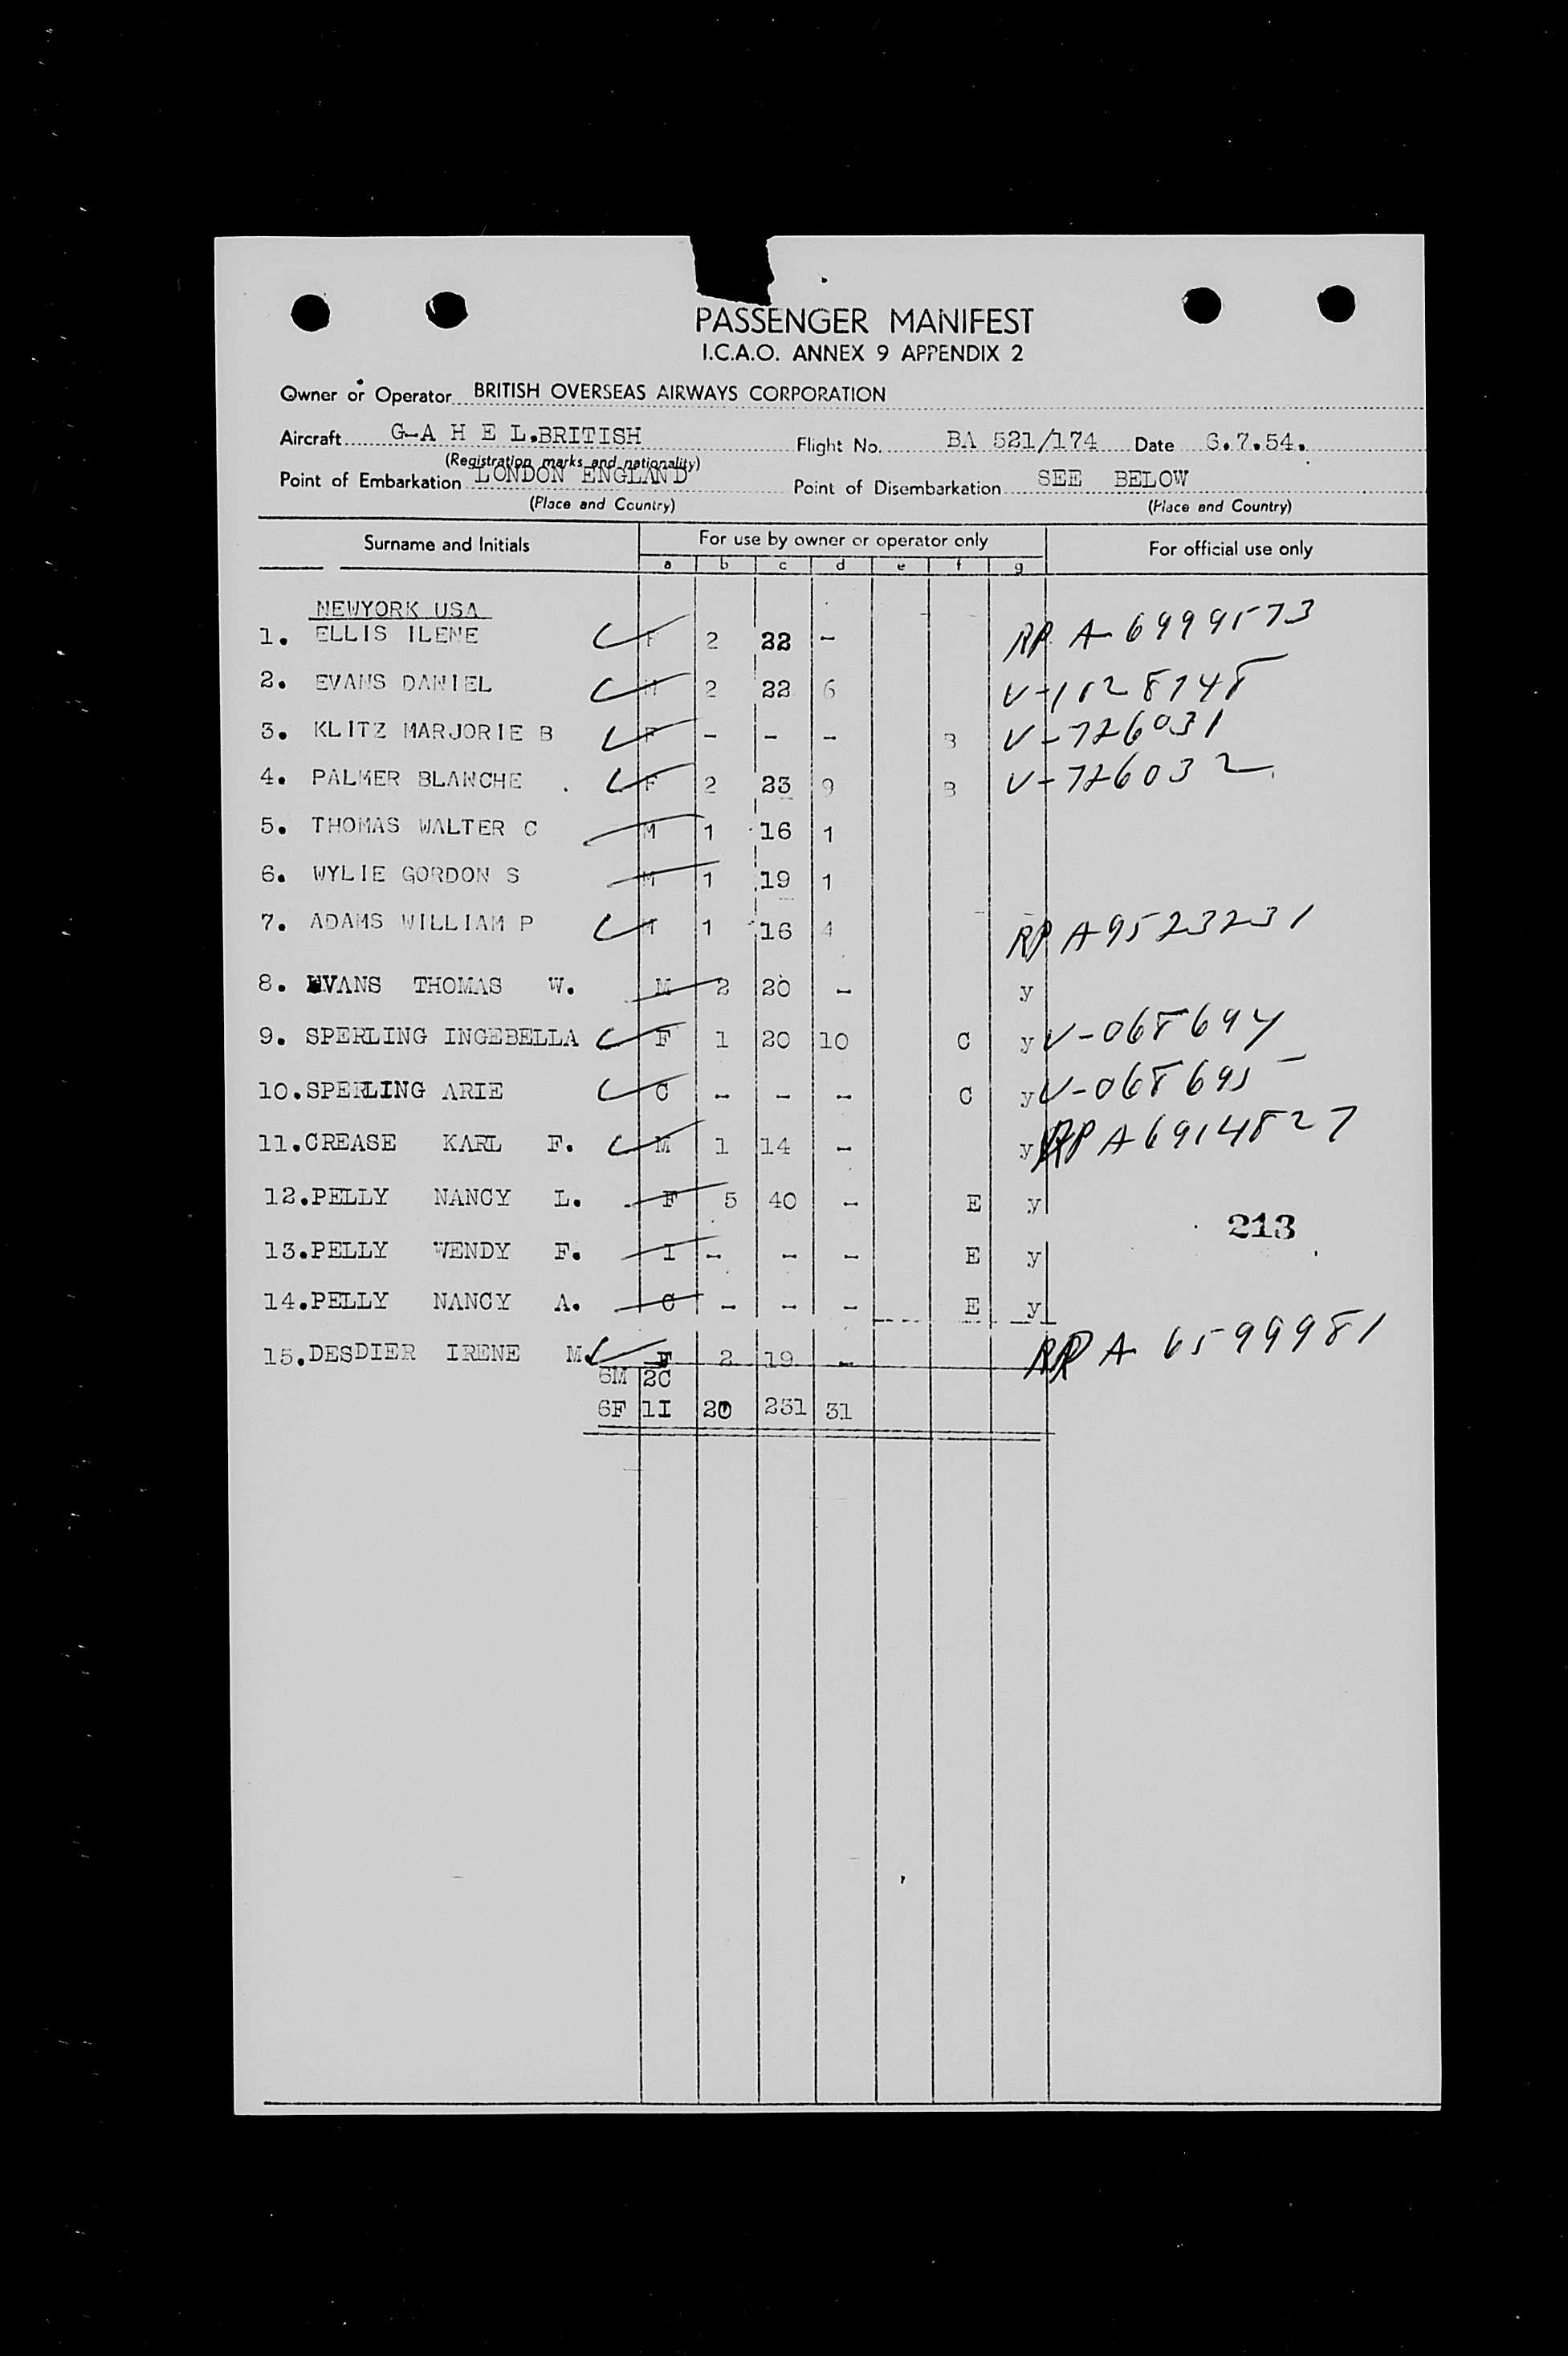 PASSENGER MANIFEST
I.C.A.O. ANNEX 9 APPENDIX 2
Owner or Operator BRITISH OVERSEAS AIRWAYS CORPORATION
Aircraft G-A H E L.BRITISH Flight No. BA 521/174 Date 6.7.54.
(Registration marks and nationality)
Point of Embarkation LONDON ENGLAND Point of Disembarkation SEE BELOW
(Place and Country) (Place and Country)
Surname and Initials For use by owner or operator only For official use only
a b c d e f g
NEWYORK USA
1. ELLIS ILENE F 2 22 - RP A-6999573
2. EVANS DANIEL M 2 22 6 V-1028748
3. KLITZ MARJORIE B F - - - B V-726031
4. PALMER BLANCHE F 2 23 9 B V-726032
5. THOMAS WALTER C M 1 16 1
6. WYLIE GORDON S M 1 19 1
7. ADAMS WILLIAM P M 1 16 4 RP A9523231
8. EVANS THOMAS W. M 2 20 - y
9. SPERLING INGEBELLA F 1 20 10 C y V-068694
10.SPERLING ARIE C - - - C y V-068695
11.CREASE KARL F. M 1 14 - y RP A6914827
12.PELLY NANCY L. F 5 40 - E y
213
13.PELLY WENDY F. I - - - E y
14.PELLY NANCY A. C - - - E y
15.DESDIER IRENE M. F 2 19 - RP A 6599981
6M 2C
6F 1I 20 231 31